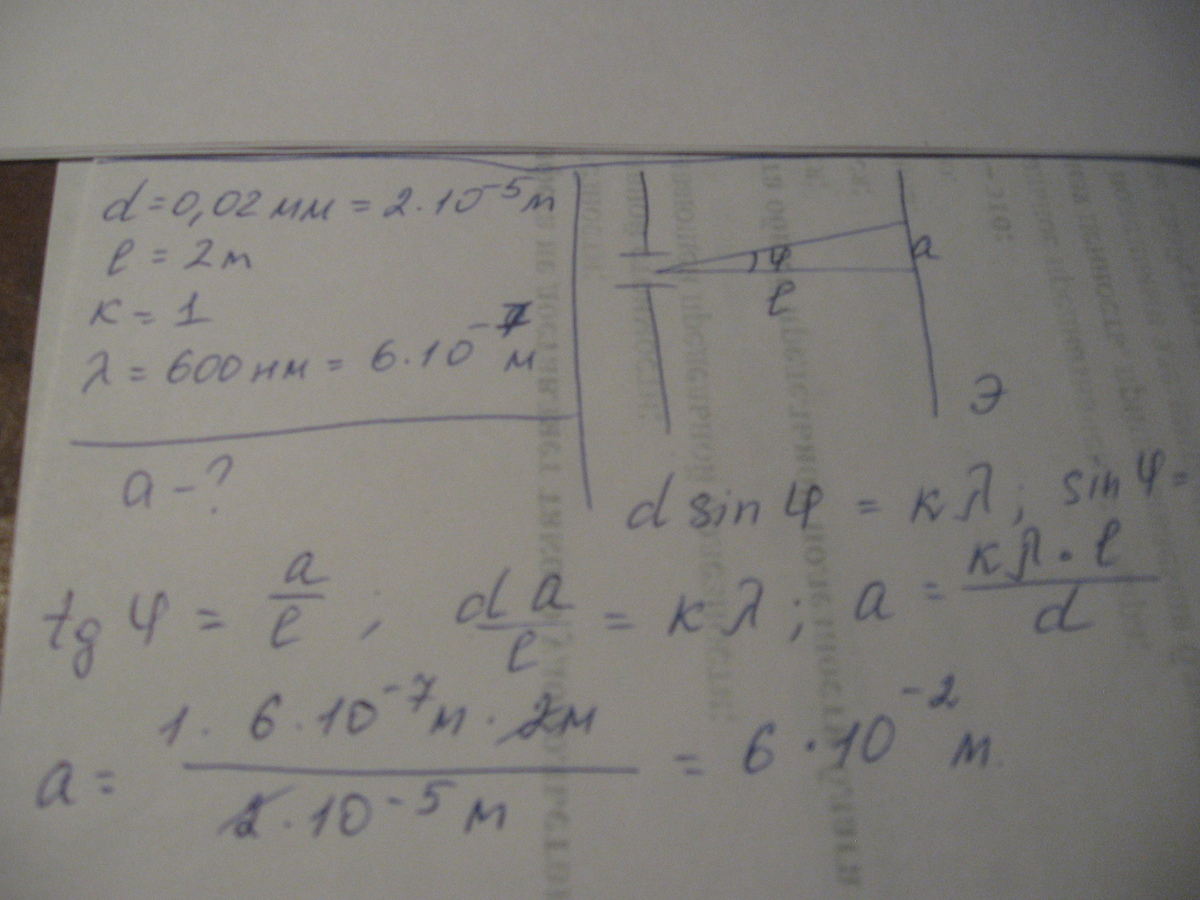 d = 0,02 мм = 2·10⁻⁵ м
l = 2 м
к = 1
λ = 600 нм = 6·10⁻⁷ м
a - ?
φ
a
l
Э
d sin φ = кλ ; sin φ =
tg φ = a/l ; da/l = кλ ; a = кλ·l/d
a = 1·6·10⁻⁷ м · 2м / 2·10⁻⁵ м = 6·10⁻² м.